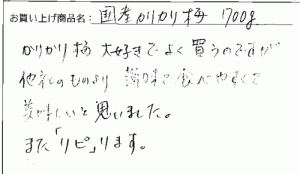 お買い上げ商品名：国産カリカリ梅 700g
カリカリ梅 大好きで よく買うのですが
他社のものより 薄味で 食べやすくて
美味しいと思いました。
また「リピ」ります。